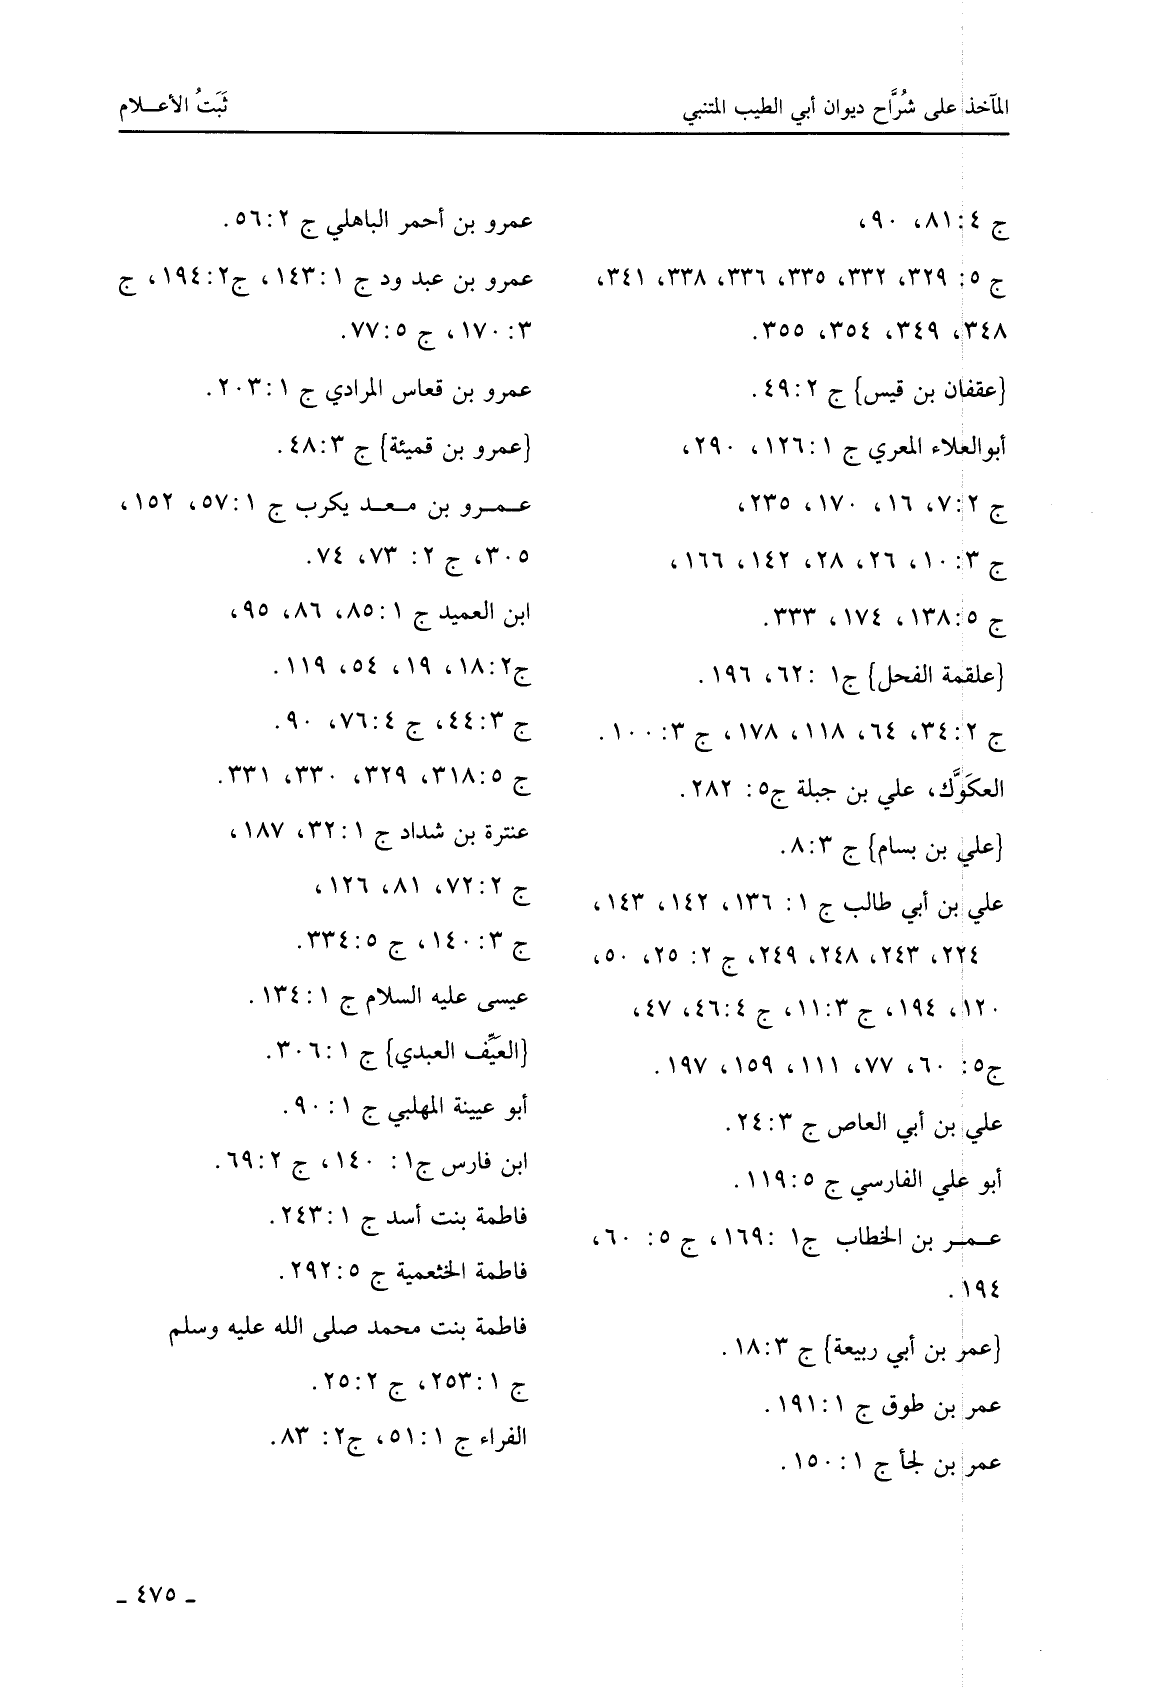 المآخذ على شُرَّاح ديوان أبي الطيب المتنبي
ثَبَتُ الأعـــلام
ج ٤: ٨١، ٩٠،
ج ٥: ٣٢٩، ٣٣٢، ٣٣٥، ٣٣٦، ٣٣٨، ٣٤١،
٣٤٨، ٣٤٩، ٣٥٤، ٣٥٥.
{عقفان بن قيس} ج ٢: ٤٩.
أبوالعلاء المعري ج ١: ١٢٦، ٢٩٠،
ج ٢: ٧، ١٦، ١٧٠، ٢٣٥،
ج ٣: ١٠، ٢٦، ٢٨، ١٤٢، ١٦٦،
ج ٥: ١٣٨، ١٧٤، ٣٣٣.
{علقمة الفحل} ج١ : ٦٢، ١٩٦.
ج ٢: ٣٤، ٦٤، ١١٨، ١٧٨، ج ٣: ١٠٠.
العكَوَّك، علي بن جبلة ج٥: ٢٨٢.
{علي بن بسام} ج ٣: ٨.
علي بن أبي طالب ج ١: ١٣٦، ١٤٢، ١٤٣،
٢٢٤، ٢٤٣، ٢٤٨، ٢٤٩، ج ٢: ٢٥، ٥٠،
١٢٠، ١٩٤، ج ٣: ١١، ج ٤: ٤٦، ٤٧،
ج٥: ٦٠، ٧٧، ١١١، ١٥٩، ١٩٧.
علي بن أبي العاص ج ٣: ٢٤.
أبو علي الفارسي ج ٥: ١١٩.
عـمـر بن الخطاب ج١ : ١٦٩، ج ٥: ٦٠،
١٩٤.
{عمر بن أبي ربيعة} ج ٣: ١٨.
عمر بن طوق ج ١: ١٩١.
عمر بن لجأ ج ١: ١٥٠.
عمرو بن أحمر الباهلي ج ٢: ٥٦.
عمرو بن عبد ود ج ١: ١٤٣، ج٢: ١٩٤، ج
٣: ١٧٠، ج ٥: ٧٧.
عمرو بن قعاس المرادي ج ١: ٢٠٣.
{عمرو بن قميئة} ج ٣: ٤٨.
عـمـرو بن مـعـد يكرب ج ١: ٥٧، ١٥٢،
٣٠٥، ج ٢: ٧٣، ٧٤.
ابن العميد ج ١: ٨٥، ٨٦، ٩٥،
ج٢: ١٨، ١٩، ٥٤، ١١٩.
ج ٣: ٤٤، ج ٤: ٧٦، ٩٠.
ج ٥: ٣١٨، ٣٢٩، ٣٣٠، ٣٣١.
عنترة بن شداد ج ١: ٣٢، ١٨٧،
ج ٢: ٧٢، ٨١، ١٢٦،
ج ٣: ١٤٠، ج ٥: ٣٣٤.
عيسى عليه السلام ج ١: ١٣٤.
{العَيِّف العبدي} ج ١: ٣٠٦.
أبو عيينة المهلبي ج ١: ٩٠.
ابن فارس ج١: ١٤٠، ج ٢: ٦٩.
فاطمة بنت أسد ج ١: ٢٤٣.
فاطمة الخثعمية ج ٥: ٢٩٢.
فاطمة بنت محمد صلى الله عليه وسلم
ج ١: ٢٥٣، ج ٢: ٢٥.
الفراء ج ١: ٥١، ج٢: ٨٣.
ـ ٤٧٥ ـ